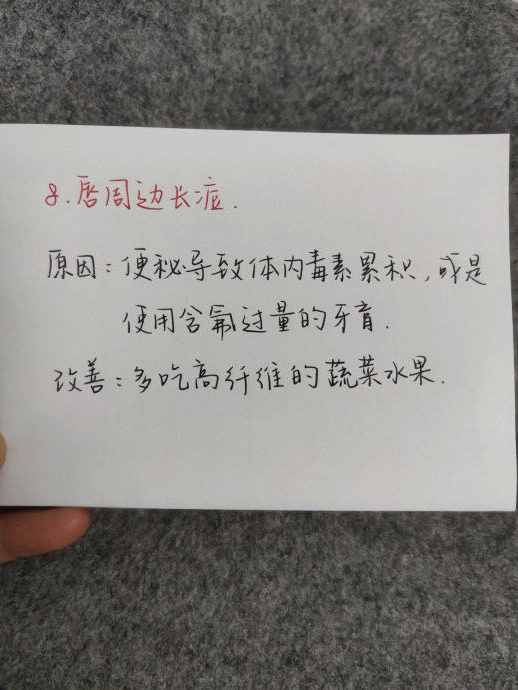 8.唇周边长痘.
原因：便秘导致体内毒素累积，或是
使用含氟过量的牙膏.
改善：多吃高纤维的蔬菜水果.